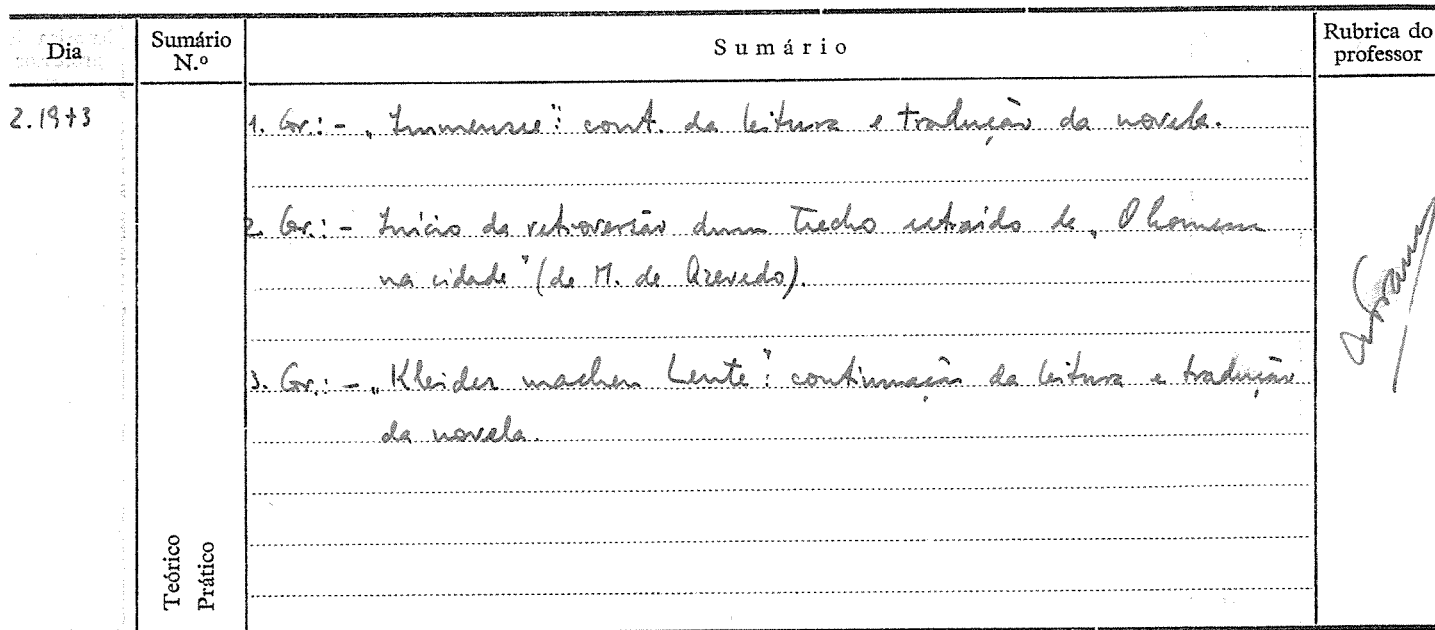 Dia
Sumário N.º
Sumário
Rubrica do professor
2.1973
1. Gr.: - „Immensee": cont. da leitura e tradução da novela.
2. Gr.: - Início da retroversão dum trecho extraído de „O homem
na cidade" (de M. de Azevedo).
3. Gr.: - „Kleider machen Leute": continuação da leitura e tradução
da novela.
Teórico
Prático